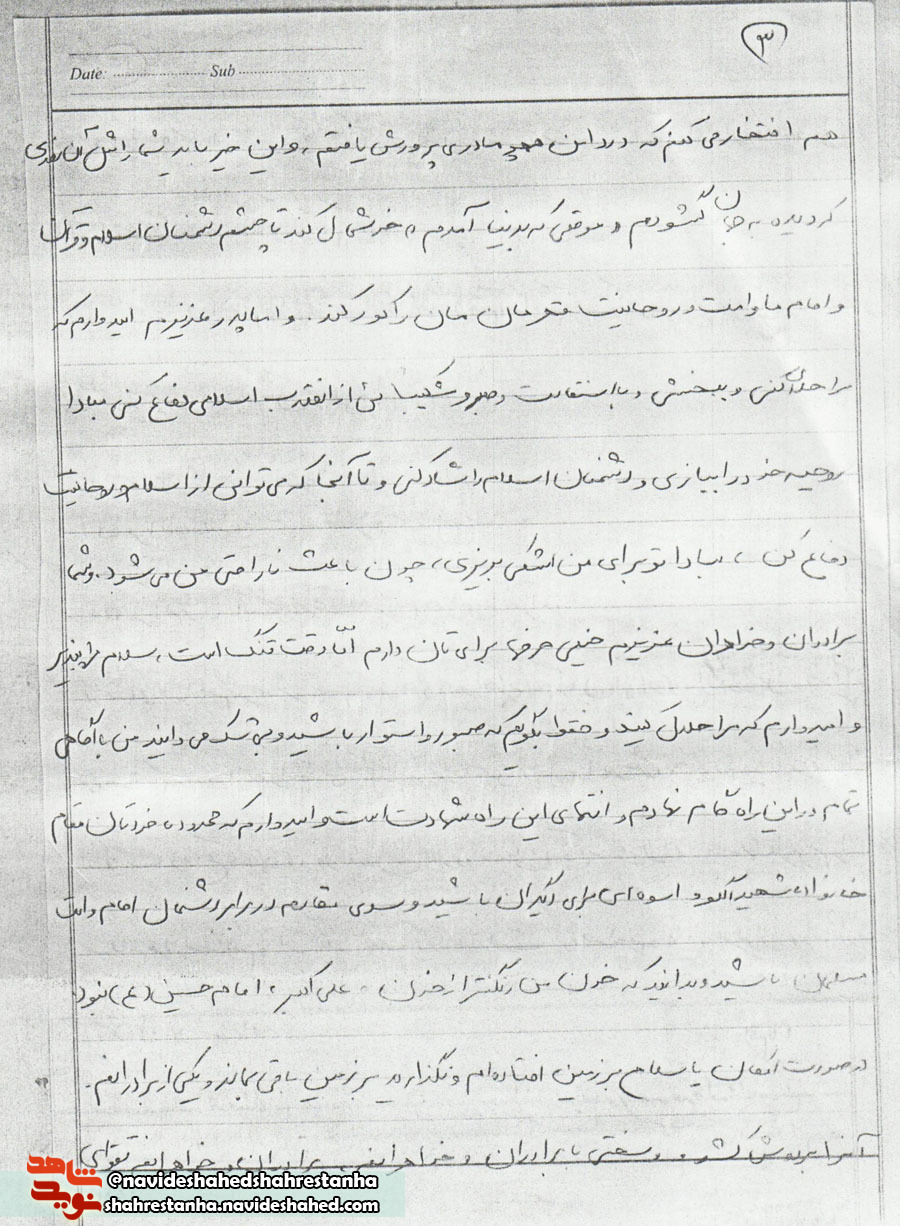 ۳
Date: Sub
هم افتخار می کنم که در دامن مادری پرورش یافتم، و این خبر باید شما را مثل آن روزی
که دیده به جهان گشودم و موقتی که بدنیا آمدم، خوشحال کند تا چشم دشمنان اسلام و قرآن
و امام ما و امت و روحانیت قهرمان مان را کور کند. و اما پدر عزیزم امیدوارم که
مرا حلال کنی و ببخشی و با استقامت و صبر و شکیبائی از انقلاب اسلامی دفاع کنی مبادا
روحیه خود را ببازی و دشمنان اسلام را شاد کنی و تا آنجا که می توانی از اسلام و روحانیت
دفاع کن، مبادا تو برای من اشکی بریزی، چون باعث ناراحتی من می شود. و شما
برادران و خواهران عزیزم خیلی حرفها برای تان دارم امّا وقت تنگ است، سلام مرا بپذیر
و امیدوارم که مرا حلال کنید و فقط بگویم که صبور و استوار باشید و بی شک می دانید من با آگاهی
تمام در این راه گام نهادم و انتهای این راه شهادت است و امیدوارم که خودتان مقام
خانواده شهید الگو و اسوه ای برای دیگران باشید و سدی مقاوم در برابر دشمنان امام و امت
مسلمان باشید و بدانید که خون من رنگینتر از خون علی اکبر، امام حسین (ع) نبود.
در صورت امکان یا سلاح بر زمین افتاده ام و نگذارید بر زمین باقی بماند و یکی از برادرانم.
آنرا بر دوش کشد و سخنی با برادران و خواهرانم. برادران و خواهرانم تقوای
شاهد نوید
@navideshahedshahrestanha
shahrestanha.navideshahed.com